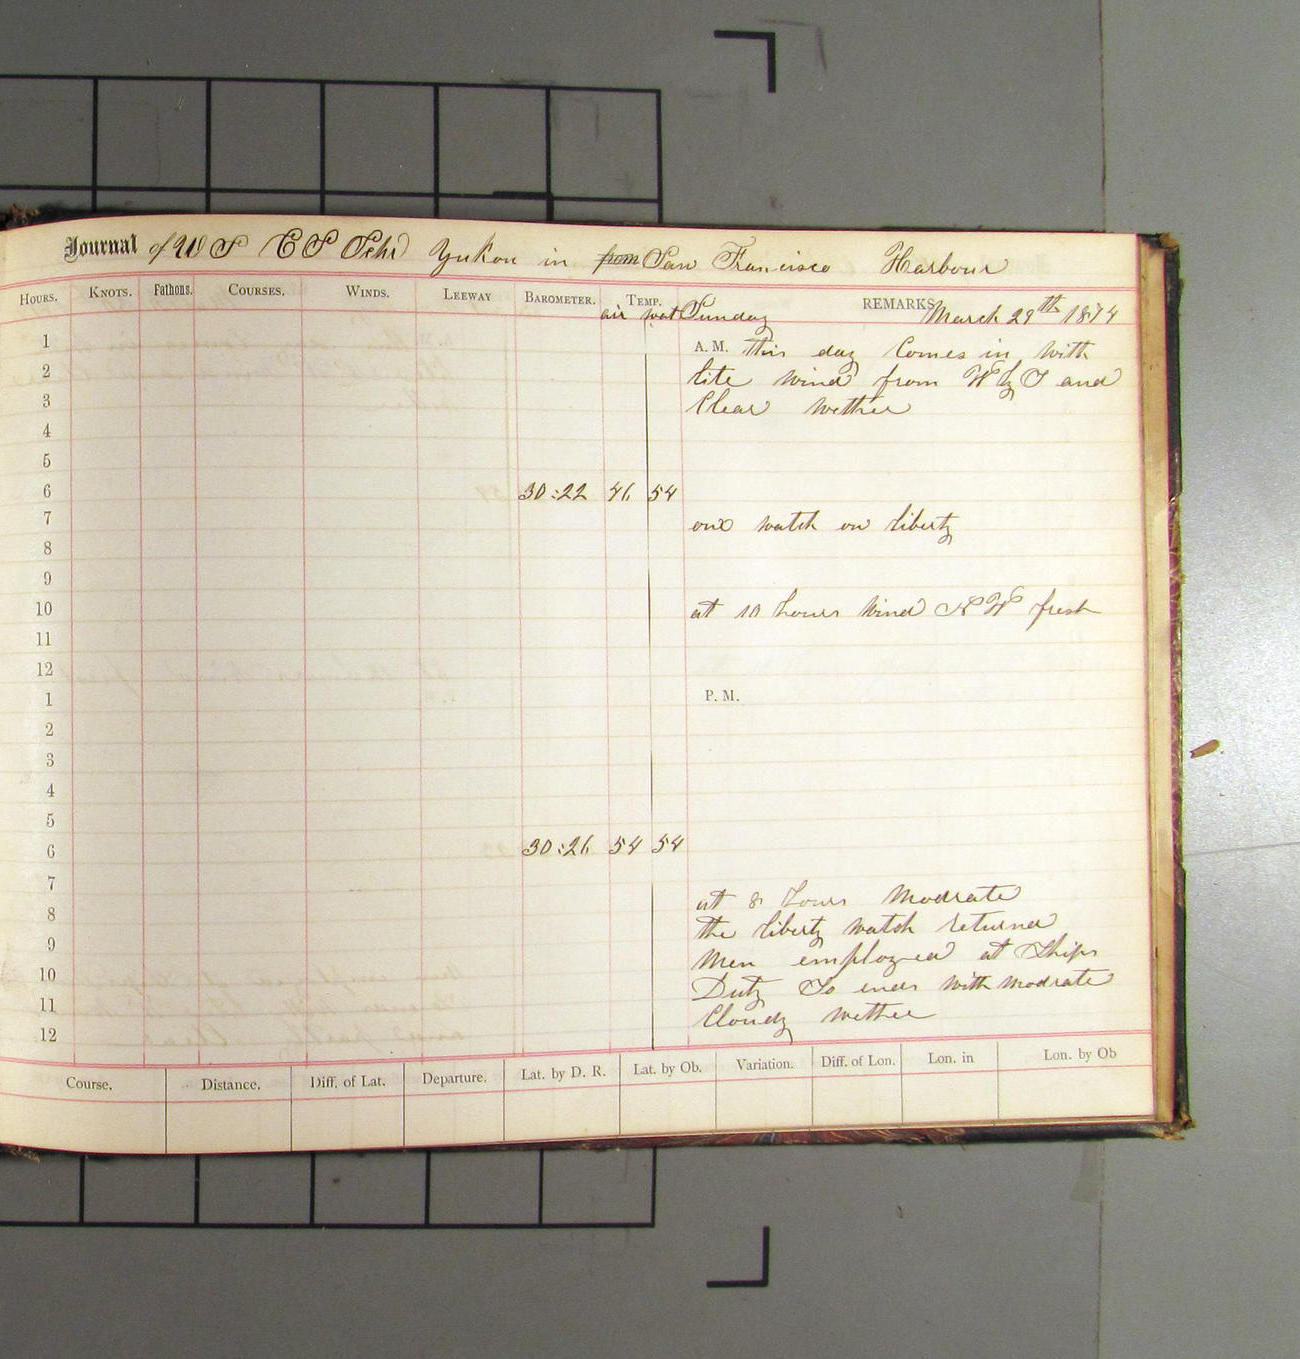 Journal of U S C S Schr Yukon in from San Francisco Harbour
HOURS. KNOTS. Fathoms. COURSES. WINDS. LEEWAY BAROMETER. TEMP. REMARKS
air wat Sunday March 29th 1874
1 A. M. this day Comes in with
2 lite wind from W by S and
3 Clear wether
4
5
6 30:22 46 54
7 one watch on liberty
8
9
10 at 10 hours wind N W fresh
11
12
1 P. M.
2
3
4
5
6 30:26 54 54
7 at 8 hours Modrate
8 the liberty watch returned
9 Men employed at Ships
10 Duty So ends with modrate
11 Cloudy wether
12
Course. Distance. Diff. of Lat. Departure. Lat. by D. R. Lat. by Ob. Variation. Diff. of Lon. Lon. in Lon. by Ob